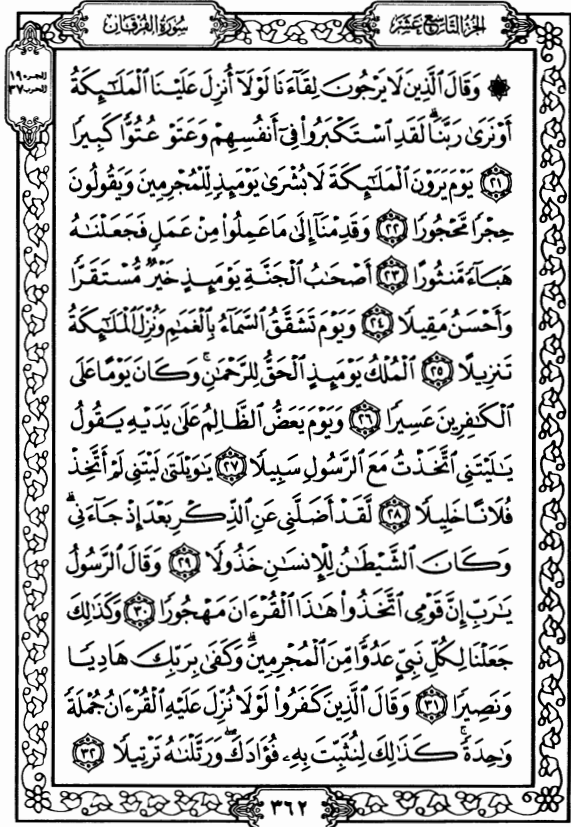 الجزء التاسع عشر
سورة الفرقان
الجزء ١٩
الحزب ٣٧
۞ وَقَالَ ٱلَّذِينَ لَا يَرْجُونَ لِقَآءَنَا لَوْلَآ أُنزِلَ عَلَيْنَا ٱلْمَلَٰٓئِكَةُ
أَوْ نَرَىٰ رَبَّنَاۗ لَقَدِ ٱسْتَكْبَرُوا۟ فِىٓ أَنفُسِهِمْ وَعَتَوْ عُتُوًّا كَبِيرًا
٢١ يَوْمَ يَرَوْنَ ٱلْمَلَٰٓئِكَةَ لَا بُشْرَىٰ يَوْمَئِذٍ لِّلْمُجْرِمِينَ وَيَقُولُونَ
حِجْرًا مَّحْجُورًا ٢٢ وَقَدِمْنَآ إِلَىٰ مَا عَمِلُوا۟ مِنْ عَمَلٍ فَجَعَلْنَٰهُ
هَبَآءً مَّنثُورًا ٢٣ أَصْحَٰبُ ٱلْجَنَّةِ يَوْمَئِذٍ خَيْرٌ مُّسْتَقَرًّا
وَأَحْسَنُ مَقِيلًا ٢٤ وَيَوْمَ تَشَقَّقُ ٱلسَّمَآءُ بِٱلْغَمَٰمِ وَنُزِّلَ ٱلْمَلَٰٓئِكَةُ
تَنزِيلًا ٢٥ ٱلْمُلْكُ يَوْمَئِذٍ ٱلْحَقُّ لِلرَّحْمَٰنِۚ وَكَانَ يَوْمًا عَلَى
ٱلْكَٰفِرِينَ عَسِيرًا ٢٦ وَيَوْمَ يَعَضُّ ٱلظَّالِمُ عَلَىٰ يَدَيْهِ يَقُولُ
يَٰلَيْتَنِى ٱتَّخَذْتُ مَعَ ٱلرَّسُولِ سَبِيلًا ٢٧ يَٰوَيْلَتَىٰ لَيْتَنِى لَمْ أَتَّخِذْ
فُلَانًا خَلِيلًا ٢٨ لَّقَدْ أَضَلَّنِى عَنِ ٱلذِّكْرِ بَعْدَ إِذْ جَآءَنِىۗ
وَكَانَ ٱلشَّيْطَٰنُ لِلْإِنسَٰنِ خَذُولًا ٢٩ وَقَالَ ٱلرَّسُولُ
يَٰرَبِّ إِنَّ قَوْمِى ٱتَّخَذُوا۟ هَٰذَا ٱلْقُرْءَانَ مَهْجُورًا ٣٠ وَكَذَٰلِكَ
جَعَلْنَا لِكُلِّ نَبِىٍّ عَدُوًّا مِّنَ ٱلْمُجْرِمِينَۗ وَكَفَىٰ بِرَبِّكَ هَادِيًا
وَنَصِيرًا ٣١ وَقَالَ ٱلَّذِينَ كَفَرُوا۟ لَوْلَا نُزِّلَ عَلَيْهِ ٱلْقُرْءَانُ جُمْلَةً
وَٰحِدَةًۚ كَذَٰلِكَ لِنُثَبِّتَ بِهِۦ فُؤَادَكَۖ وَرَتَّلْنَٰهُ تَرْتِيلًا ٣٢
٣٦٢